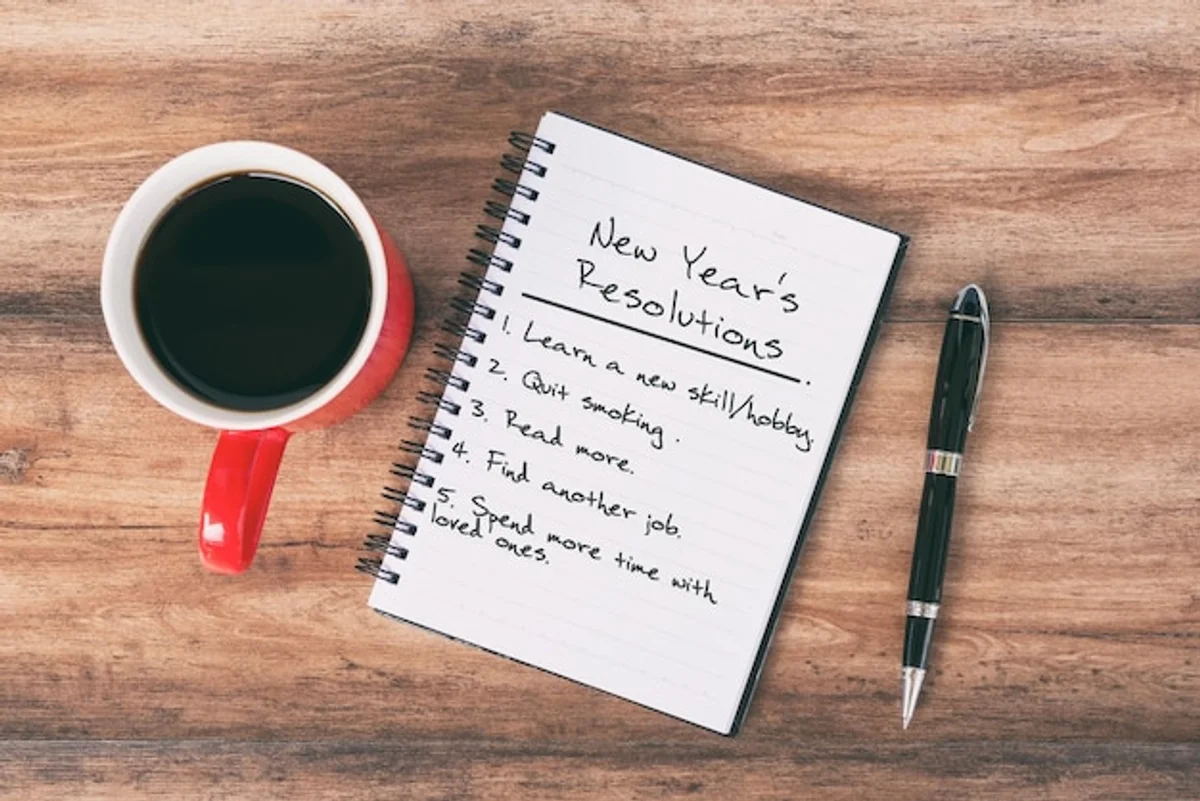 New Year's
Resolutions
1. Learn a new skill/hobby.
2. Quit smoking.
3. Read more.
4. Find another job.
5. Spend more time with
loved ones.